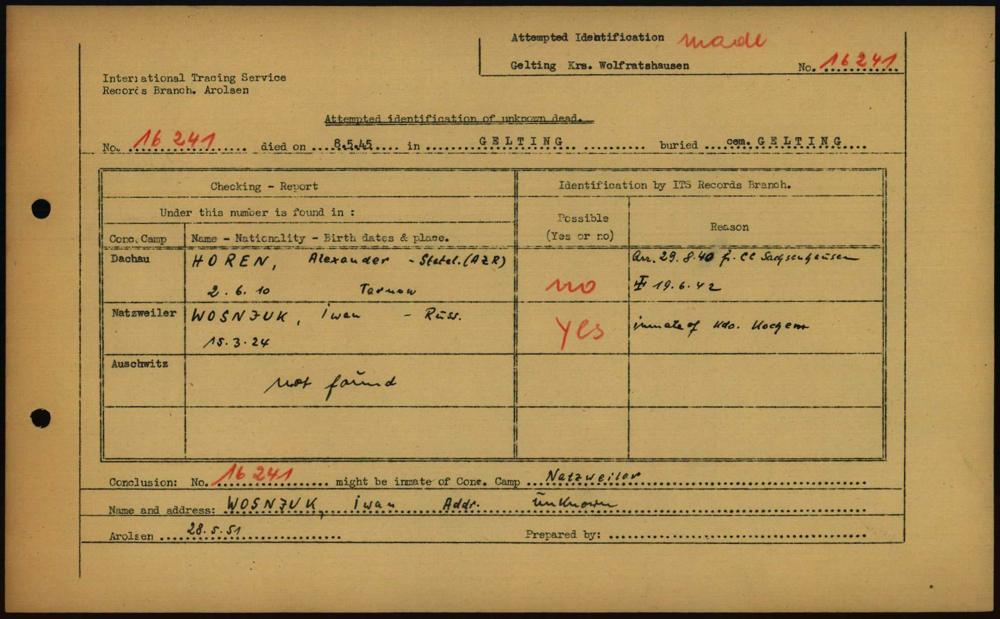 Attempted Identification made
Gelting Krs. Wolfratshausen No. 16241
International Tracing Service
Records Branch. Arolsen
Attempted identification of unknown dead.
No. 16 241 died on 8.5.45 in GELTING buried cem. GELTING
Checking - Report Identification by ITS Records Branch.
Under this number is found in : Possible (Yes or no) Reason
Conc. Camp Name - Nationality - Birth dates & place.
Dachau HOREN, Alexander - Statel. (AZR) no Arr. 29.8.40 fr. CC Sachsenhausen
2.6.10 Tarnow 19.6.42
Natzweiler WOSNJUK, Iwan - Russ. yes inmate of Kdo. Kochem
15.3.24
Auschwitz not found
Conclusion: No. 16 241 might be inmate of Conc. Camp Natzweiler
Name and address: WOSNJUK, Iwan Addr. unknown
Arolsen 28.5.51 Prepared by: